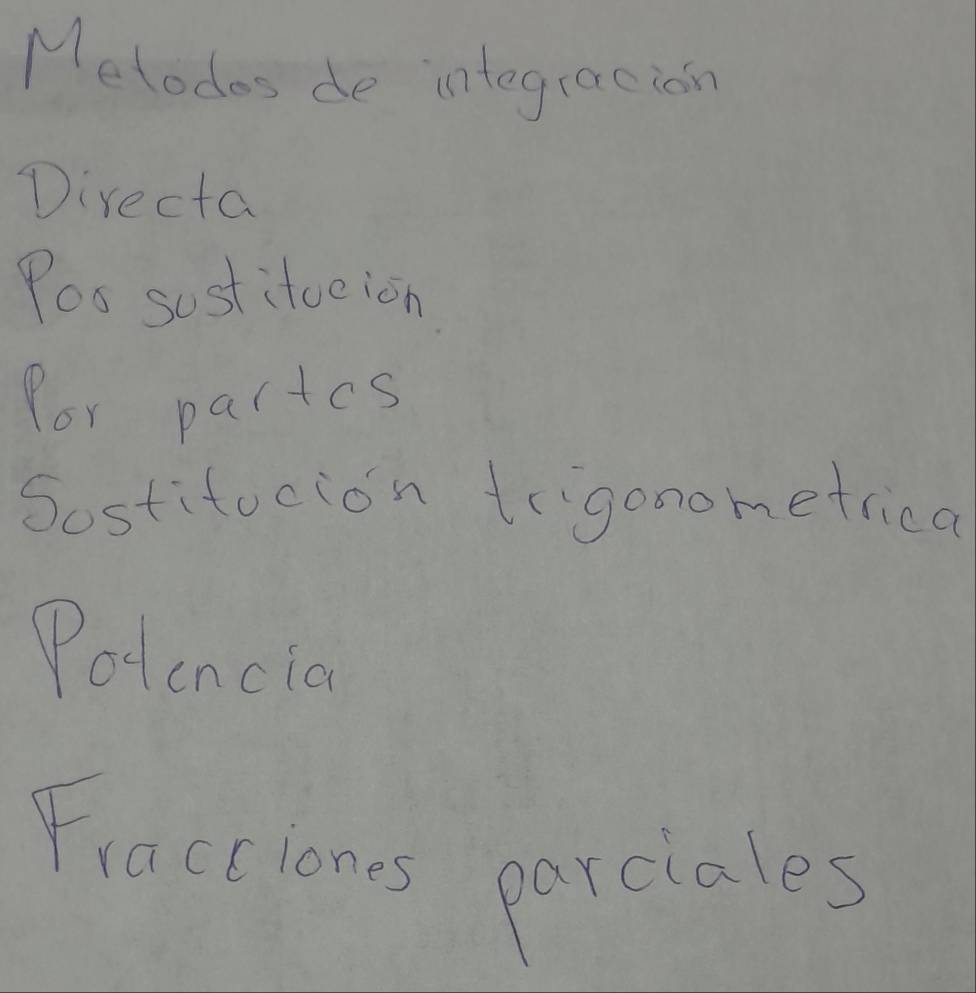 Metodos de integración
Directa
Por sustitución
Por partes
Sustitución trigonometrica
Potencia
Fracciones parciales